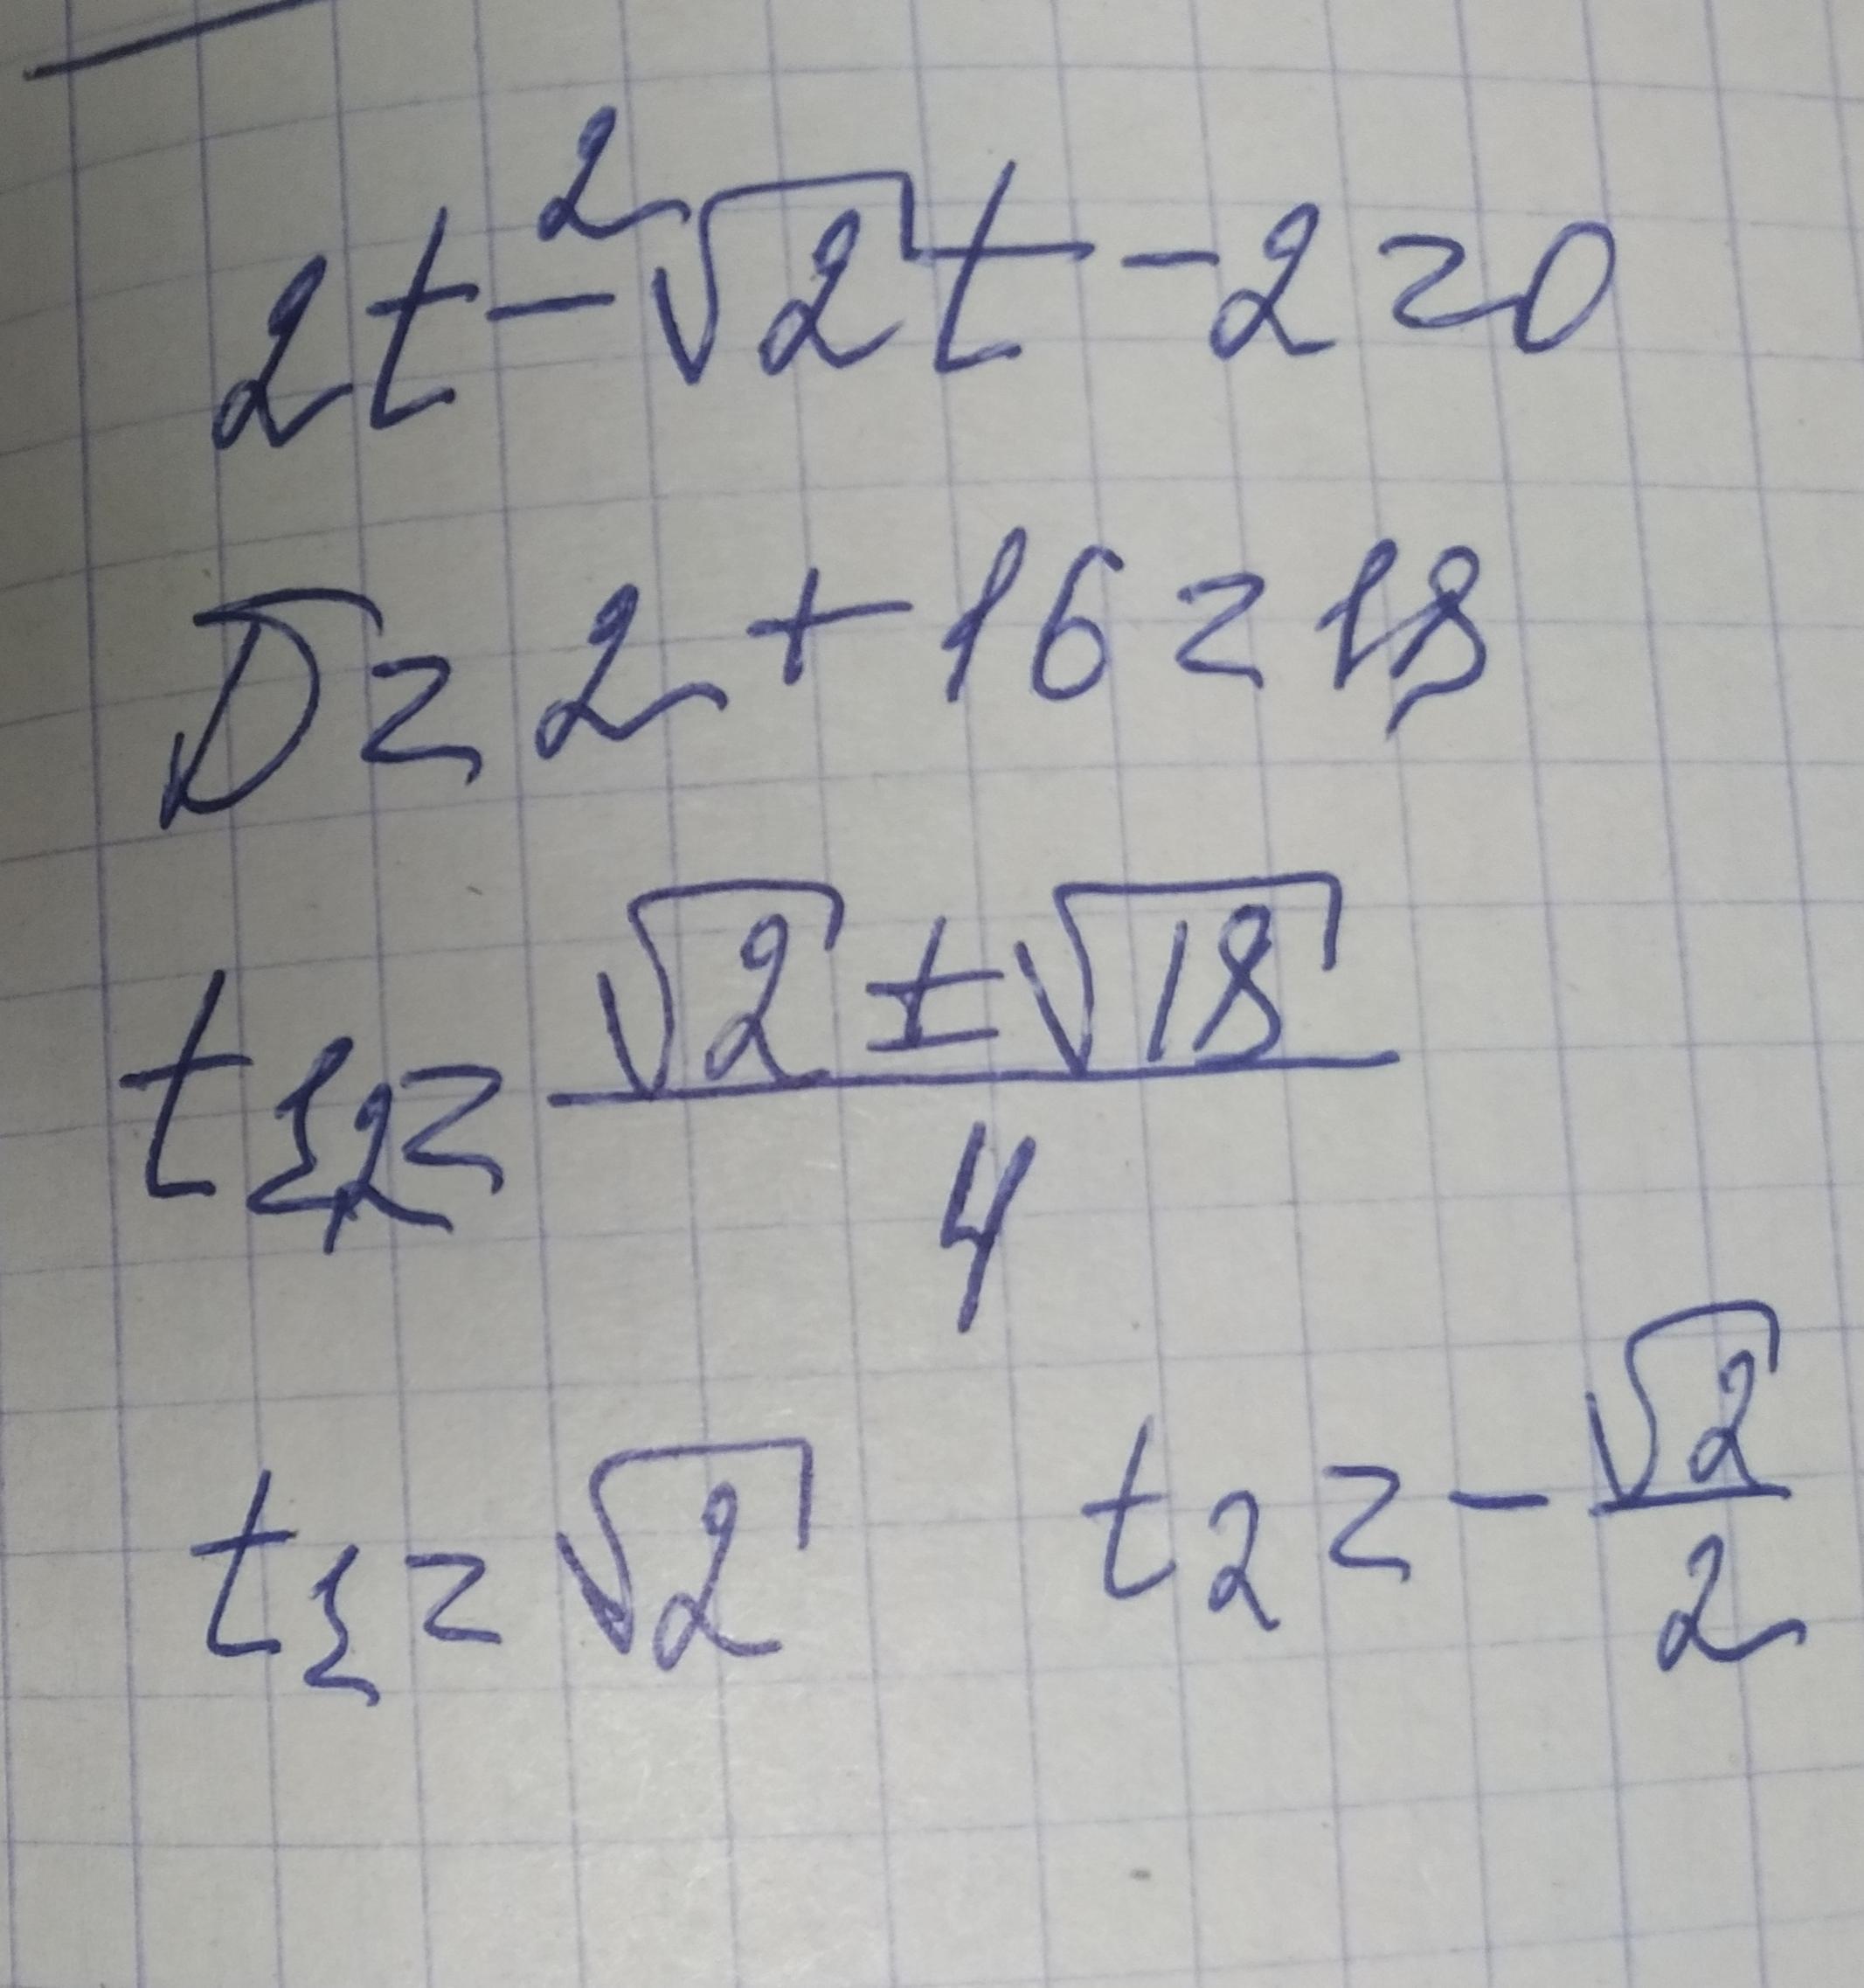 2t² - √2t - 2 = 0
D = 2 + 16 = 18
t₁,₂ = (√2 ± √18) / 4
t₁ = √2 t₂ = - √2 / 2